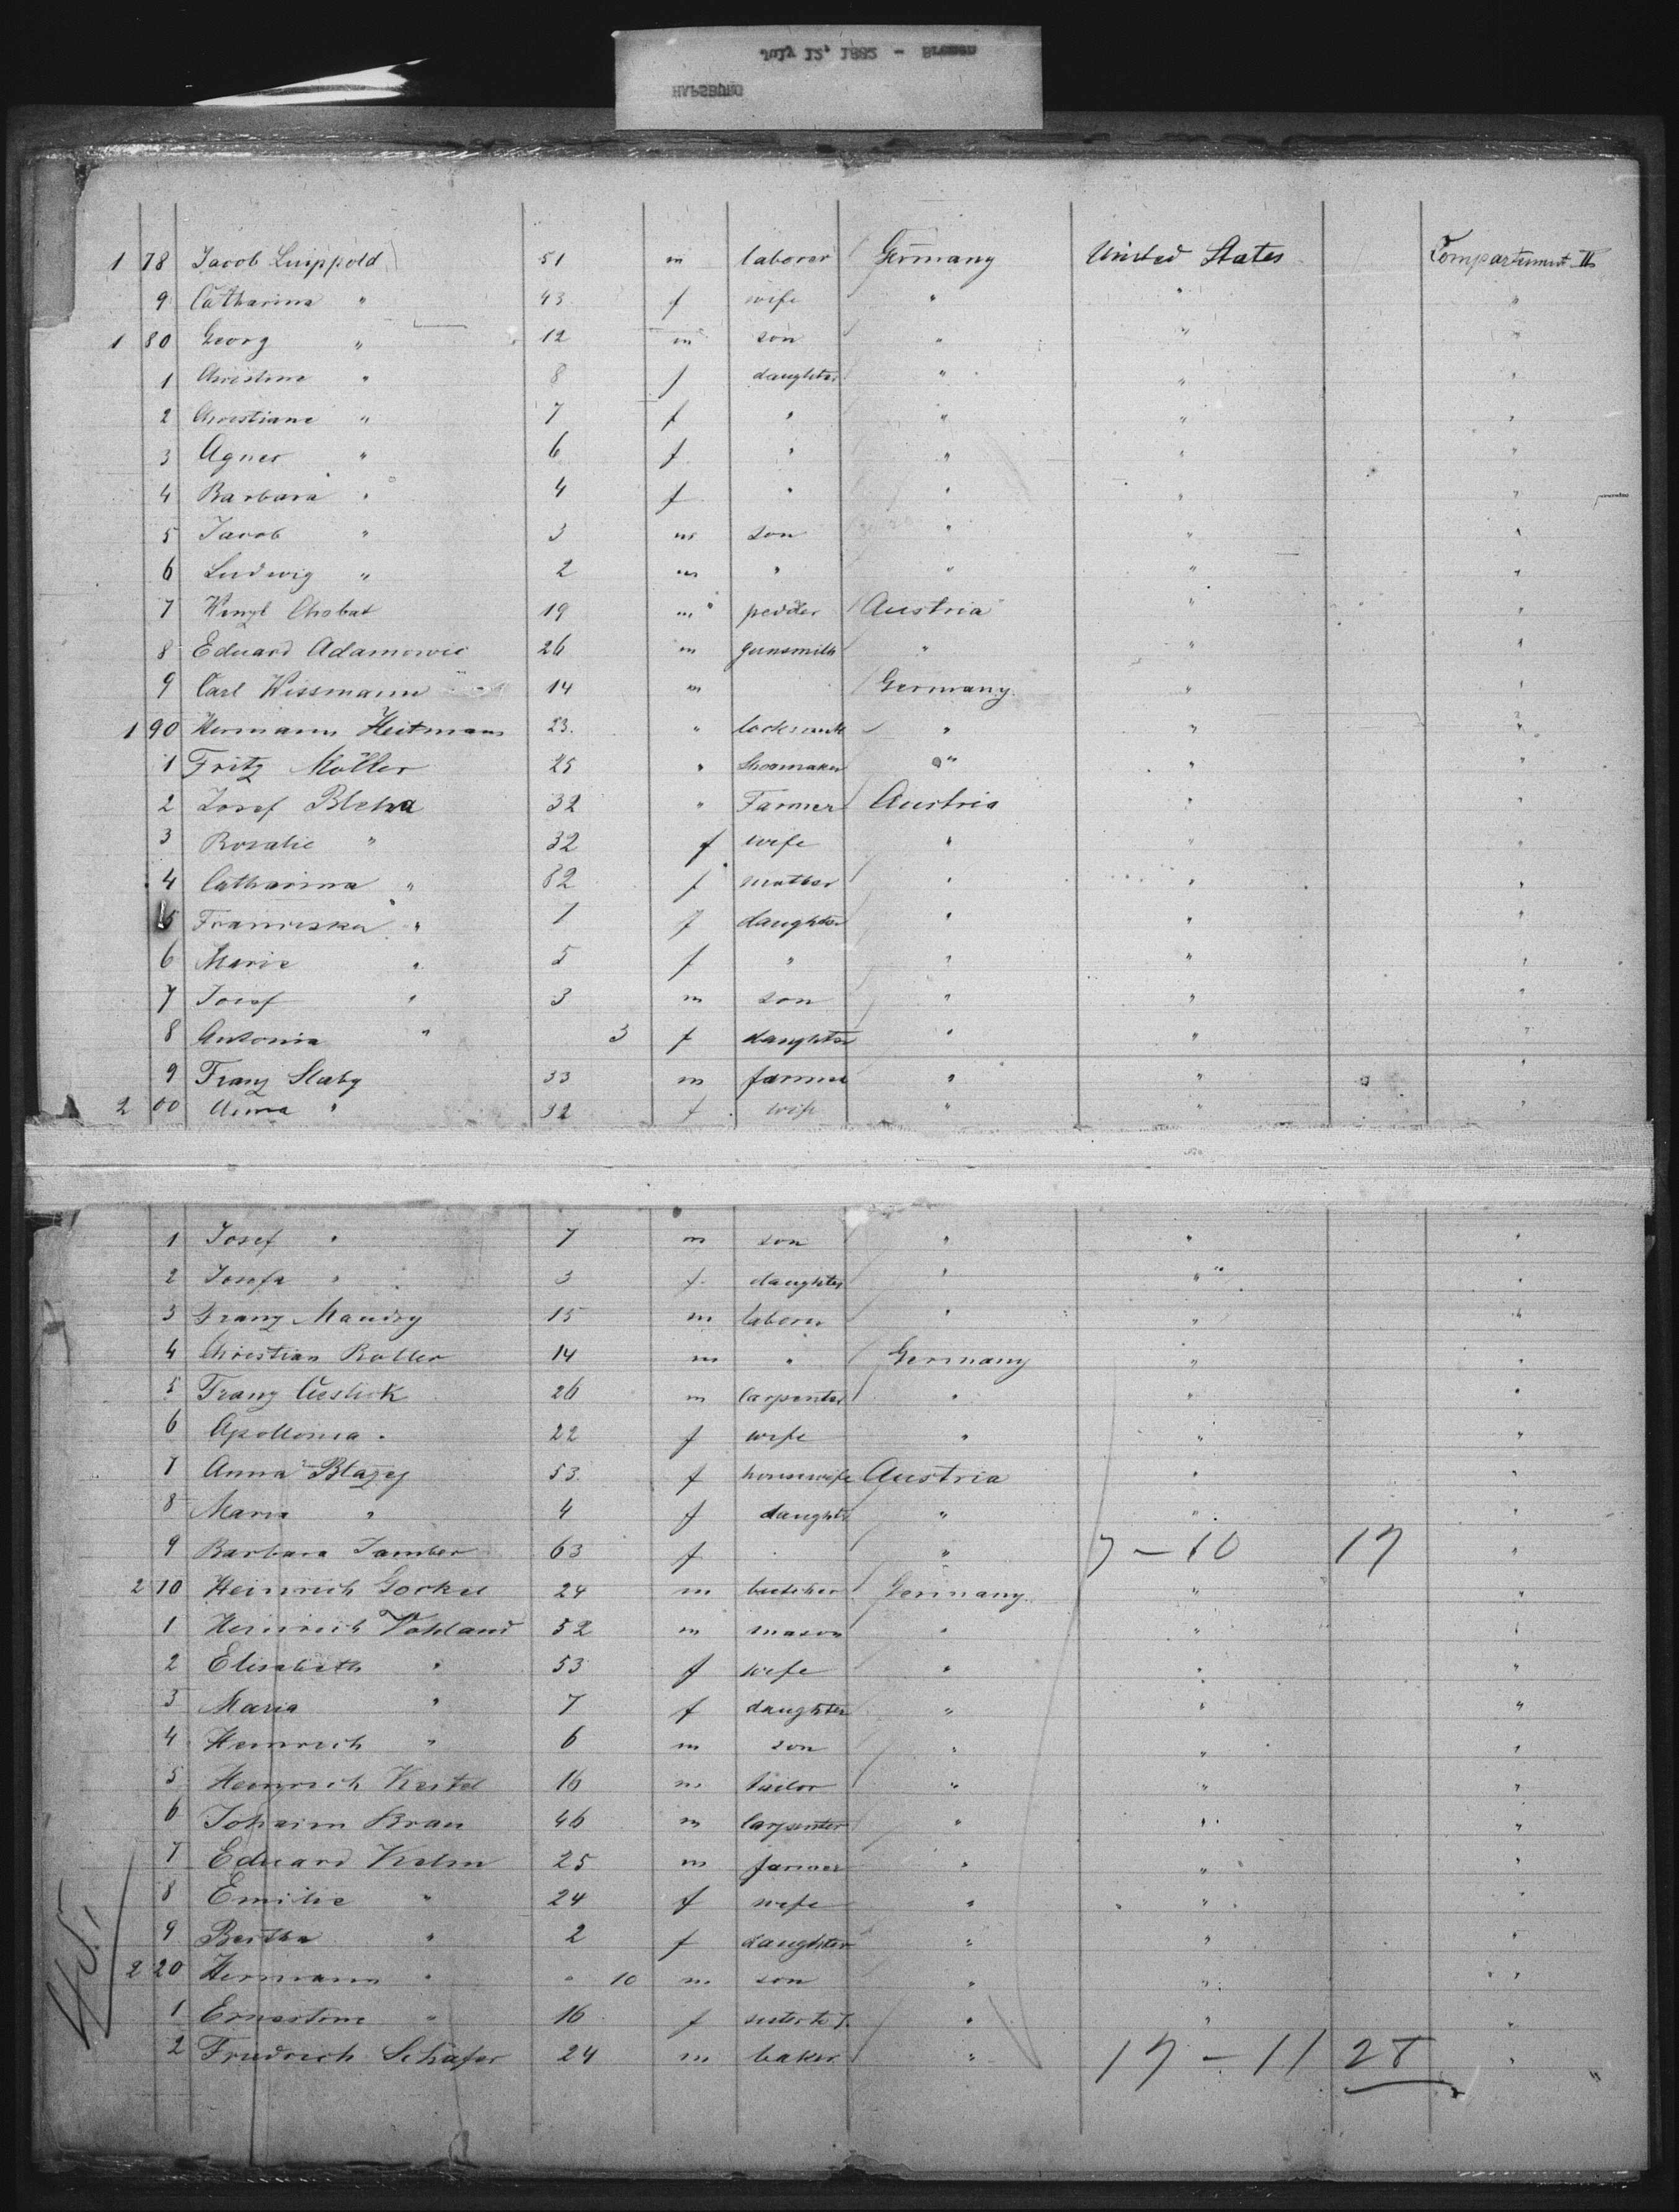 July 12, 1882 - Bremen
HAPSBURG
1 78 Jacob Luippold 51 m laborer Germany United States Compartment II
9 Catharina " 43 f wife " " "
1 80 Georg " 12 m son " " "
1 Christine " 8 f daughter " " "
2 Christiane " 7 f " " " "
3 Agnes " 6 f " " " "
4 Barbara " 4 f " " " "
5 Jacob " 3 m son " " "
6 Ludwig " 2 m " " " "
7 Wenzl Chobat 19 m pedder Austria " "
8 Eduard Adamowic 26 m gunsmith " " "
9 Carl Wissmann 14 m Germany " "
1 90 Hermann Heitmann 23 " locksmith " " "
1 Fritz Möller 25 " Shoemaker " " "
2 Josef Blcha 32 " Farmer Austria " "
3 Rosalie " 32 f wife " " "
4 Catharina " 82 f mother " " "
5 Franziska " 7 f daughter " " "
6 Marie " 5 f " " " "
7 Josef " 3 m son " " "
8 Antonia " 3 f daughter " " "
9 Franz Slaby 33 m farmer " " "
2 00 Anna " 32 f wife " " "
1 Josef " 7 m son " " "
2 Josefa " 3 f daughter " " "
3 Franz Maudry 15 m laborer " " "
4 Christian Roller 14 m " Germany " "
5 Franz Cieslick 26 m carpenter " " "
6 Apollonia " 22 f wife " " "
7 Anna Blazej 53 f housewife Austria " "
8 Maria " 4 f daughter " " "
9 Barbara Jamber 63 f " 7-10 17 "
2 10 Heinrich Gockel 24 m butcher Germany " "
1 Heinrich Vohland 52 m mason " " "
2 Elisabeth " 53 f wife " " "
3 Maria " 7 f daughter " " "
4 Heinrich " 6 m son " " "
5 Heinrich Kestel 16 m tailor " " "
6 Johann Brau 46 m carpenter " " "
7 Eduard Kelm 25 m farmer " " "
8 Emilie " 24 f wife " " "
9 Bertha " 2 f daughter " " "
2 20 Hermann " " 10 m son " " "
1 Ernestine " 16 f sister to 7. " " "
2 Friedrich Schäfer 24 m baker " 17-11 28 "